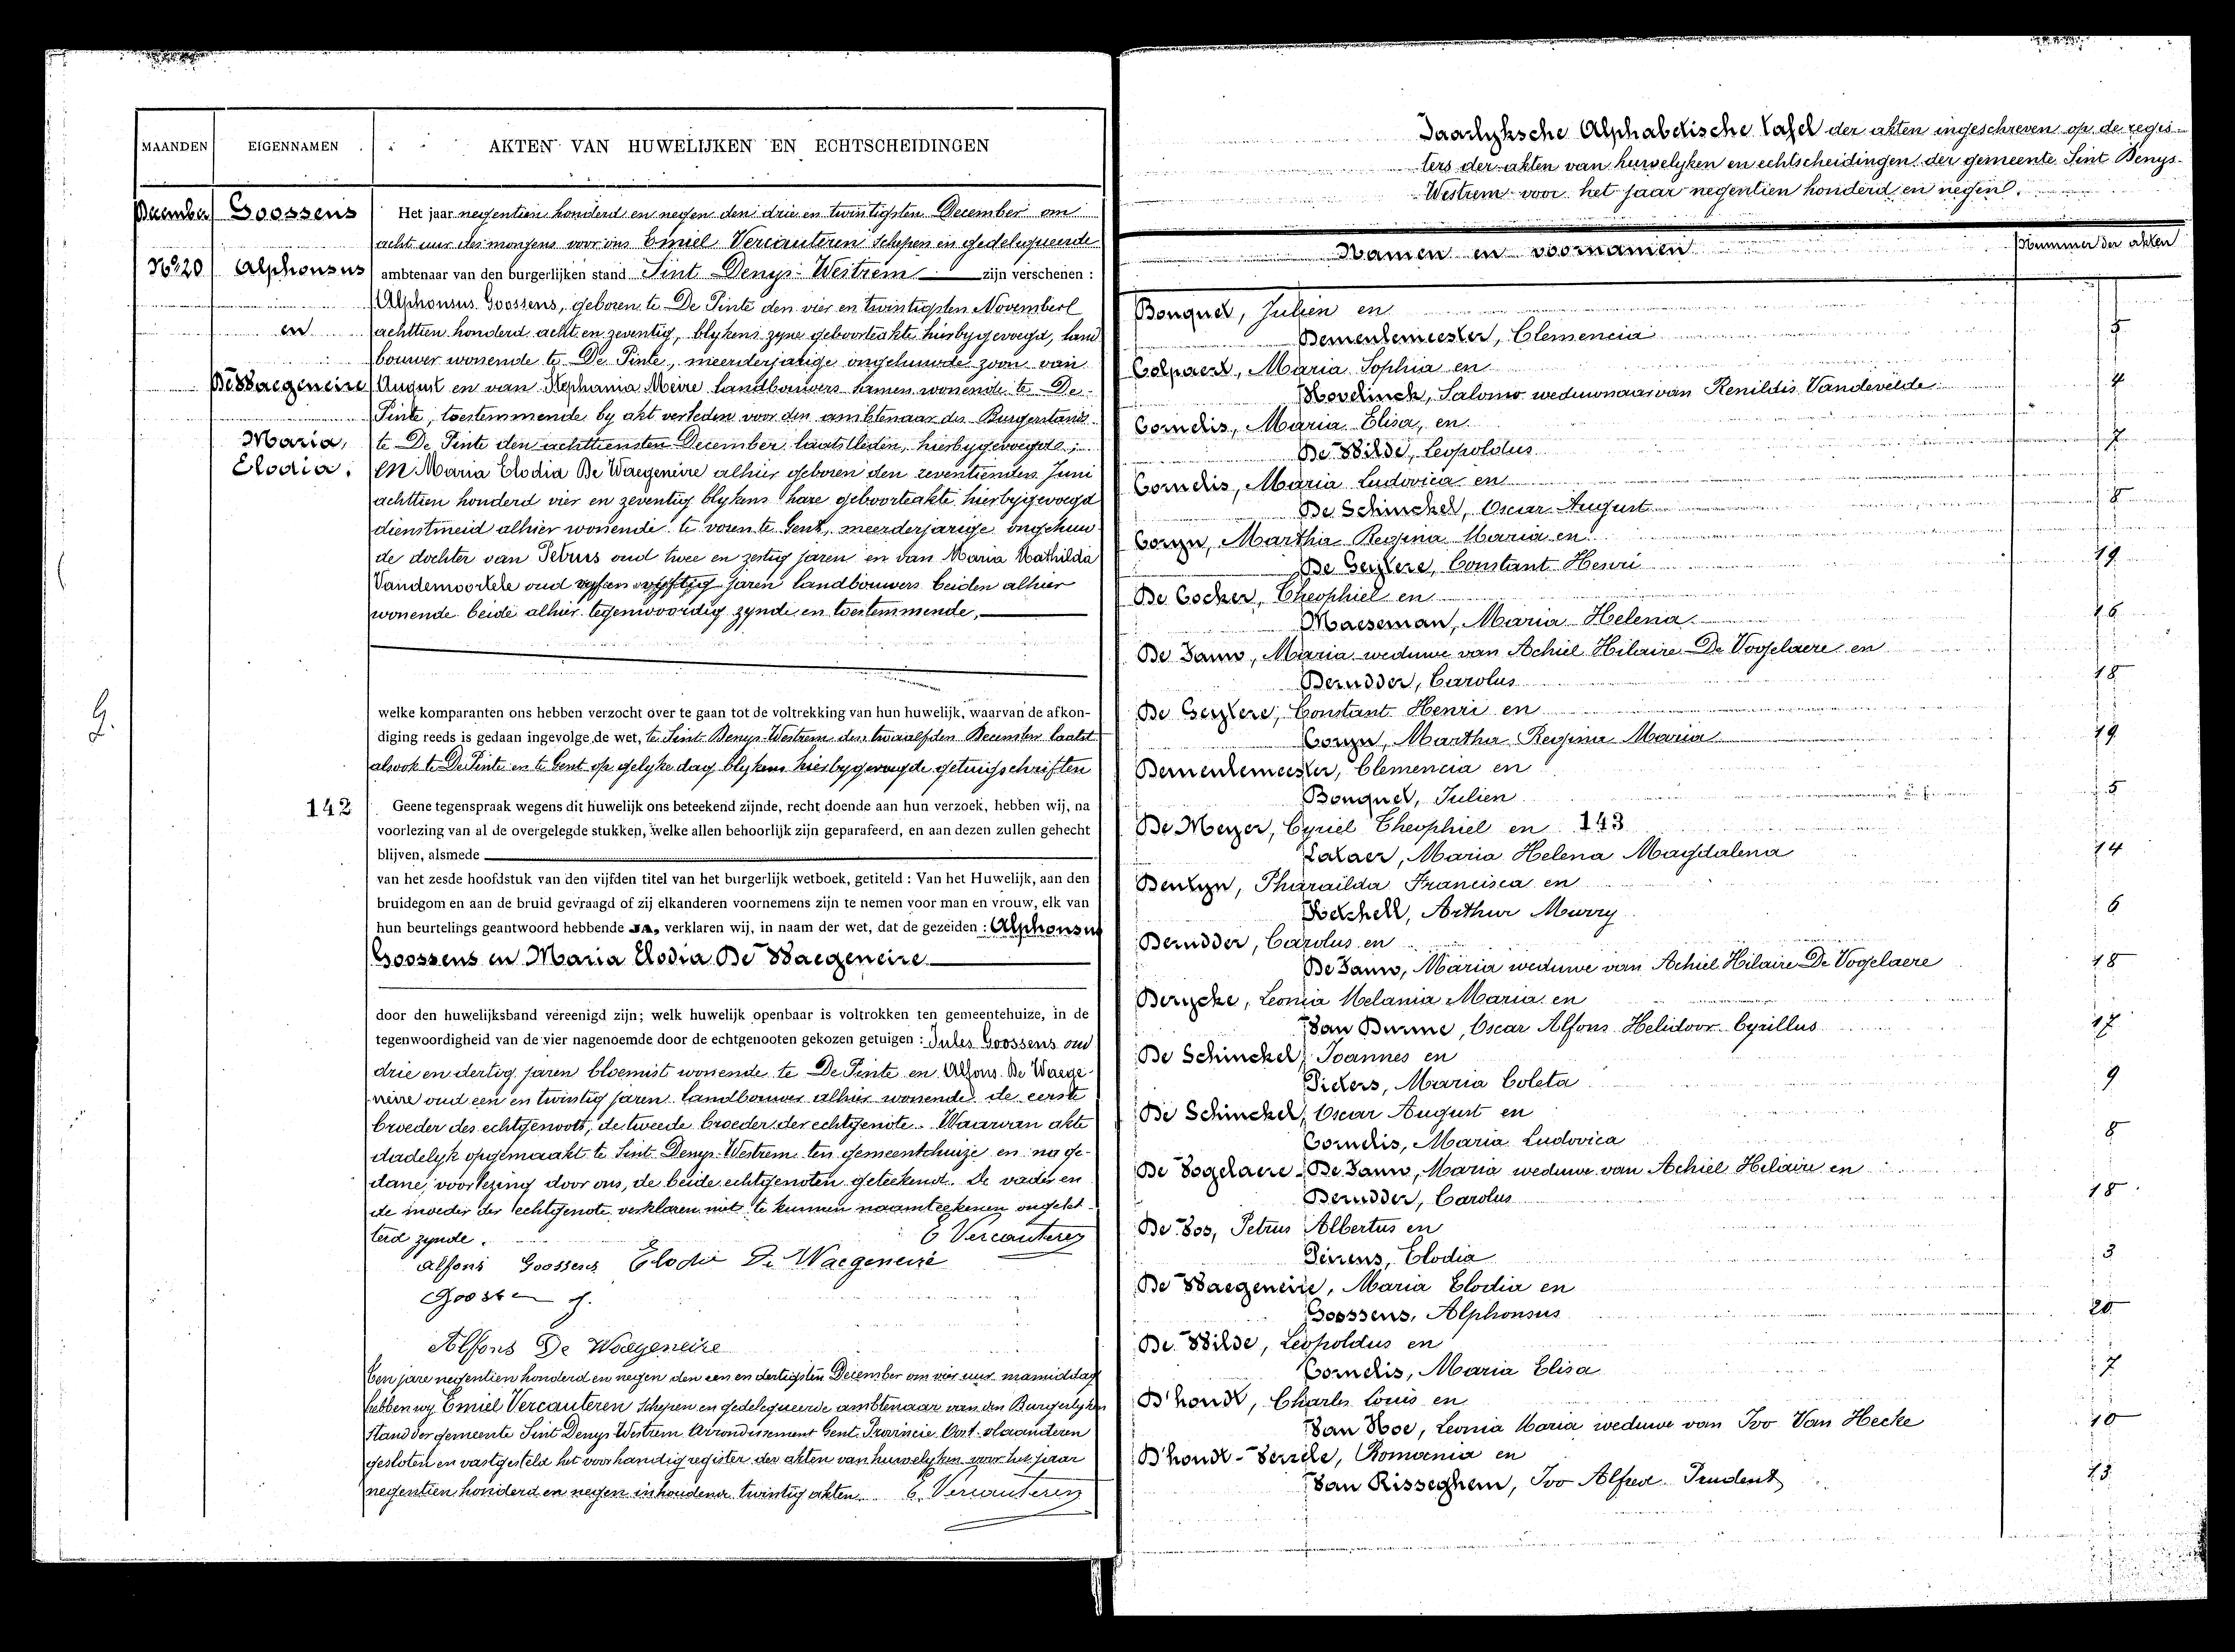 MAANDEN
EIGENNAMEN
AKTEN VAN HUWELIJKEN EN ECHTSCHEIDINGEN
December
No 20
Goossens
Alphonsus
en
De Waegeneire
Maria,
Elodia.
G.
142
Het jaar negentien honderd en negen den drie en twintigsten December om
acht uur des morgens voor ons Emiel Vercauteren Schepen en gedelegueerde
ambtenaar van den burgerlijken stand Sint Denys-Westrem zijn verschenen :
Alphonsus Goossens, geboren te De Pinte den vier en twintigsten November
achttien honderd acht en zeventig, blykens zyne geboorteakte hierbygevoegd, land
bouwer wonende te De Pinte, meerderjarige ongehuwde zoon van
August en van Stephania Meire landbouwers samen wonende te De
Pinte, toestemmende by akt verleden voor den ambtenaar des Burgerstands
te De Pinte den achttiensten December laatstleden, hierbygevoegd ;
en Maria Elodia De Waegeneire alhier geboren den zeventienden Juni
achttien honderd vier en zeventig blykens hare geboorteakte hierbygevoegd
dienstmeid alhier wonende te voren te Gent, meerderjarige ongehuw
de dochter van Petrus oud twee en zestig jaren en van Maria Mathilda
Vandemoortele oud vyf en vyftig jaren landbouwers beiden alhier
wonende beide alhier tegenwoordig zynde en toestemmende,
welke komparanten ons hebben verzocht over te gaan tot de voltrekking van hun huwelijk, waarvan de afkon-
diging reeds is gedaan ingevolge de wet, te Sint Denys-Westrem den twaalfden December laatst
alsook te De Pinte en te Gent op gelyke dag blykens hierbygevoegde getuigschriften
Geene tegenspraak wegens dit huwelijk ons beteekend zijnde, recht doende aan hun verzoek, hebben wij, na
voorlezing van al de overgelegde stukken, welke allen behoorlijk zijn geparafeerd, en aan dezen zullen gehecht
blijven, alsmede
van het zesde hoofdstuk van den vijfden titel van het burgerlijk wetboek, getiteld : Van het Huwelijk, aan den
bruidegom en aan de bruid gevraagd of zij elkanderen voornemens zijn te nemen voor man en vrouw, elk van
hun beurtelings geantwoord hebbende JA, verklaren wij, in naam der wet, dat de gezeiden : Alphonsus
Goossens en Maria Elodia De Waegeneire
door den huwelijksband vereenigd zijn; welk huwelijk openbaar is voltrokken ten gemeentehuize, in de
tegenwoordigheid van de vier nagenoemde door de echtgenooten gekozen getuigen : Jules Goossens oud
drie en dertig jaren bloemist wonende te De Pinte en Alfons De Waege-
neire oud een en twintig jaren landbouwer alhier wonende de eerste
broeder des echtgenoots, de tweede broeder der echtgenote. Waarvan akte
dadelyk opgemaakt te Sint Denys-Westrem ten gemeentehuize en na ge-
dane voorlezing door ons, de beide echtgenoten geteekend. De vader en
de moeder der echtgenote verklaren niet te kunnen naamteekenen ongelet-
terd zynde. E Vercauteren
Alfons Goossens Elodie De Waegeneire
Goossen J.
Alfons De Waegeneire
Ten jare negentien honderd en negen den een en dertigsten December om vier uur namiddag
hebben wy Emiel Vercauteren Schepen en gedelegueerde ambtenaar van den Burgerlyken
Stand der gemeente Sint Denys Westrem Arrondissement Gent Provincie Oost-vlaanderen
gesloten en vastgesteld het voorhandig register der akten van huwelyken voor het jaar
negentien honderd en negen inhoudend twintig akten. E. Vercauteren
Jaarlyksche Alphabetische tafel der akten ingeschreven op de regis-
ters der akten van huwelyken en echtscheidingen der gemeente Sint Denys-
Westrem voor het jaar negentien honderd en negen.
Namen en voornamen
Nummer der akten
Bouquet, Julien en
Demeulemeester, Clemencia 5
Colpaert, Maria Sophia en
Hovelinck, Salomo weduwnaar van Renildis Vandevelde 4
Cornelis, Maria Elisa, en
De Wilde, Leopoldus 7
Cornelis, Maria Ludovica en
De Schinckel, Oscar August 8
Coryn, Martha Regina Maria en
De Geytere, Constant Henri 19
De Cocker, Theophiel en
Maeseman, Maria Helena 16
De Jauw, Maria weduwe van Achiel Hilaire De Vogelaere en
Derudder, Carolus 18
De Geytere, Constant Henri en
Coryn, Martha Regina Maria 19
Demeulemeester, Clemencia en
Bouquet, Julien 5
De Meyer, Cyriel Theophiel en 143
Lataer, Maria Helena Magdalena 14
Deutyn, Pharaïlda Francisca en
Ketchell, Arthur Murry 6
Derudder, Carolus en
De Jauw, Maria weduwe van Achiel Hilaire De Vogelaere 18
Derycke, Leonia Melania Maria en
Van Durme, Oscar Alfons Helidoor Cyrillus 17
De Schinckel, Joannes en
Pieters, Maria Coleta 9
De Schinckel, Oscar August en
Cornelis, Maria Ludovica 8
De Vogelaere - De Jauw, Maria weduwe van Achiel Hilaire en
Derudder, Carolus 18
De Vos, Petrus Albertus en
Peirens, Elodia 3
De Waegeneire, Maria Elodia en
Goossens, Alphonsus 20
De Wilde, Leopoldus en
Cornelis, Maria Elisa 7
D'hondt, Charles Louis en
Van Hoe, Leonia Maria weduwe van Ivo Van Hecke 10
D'hondt-Verrele, Romania en
Van Risseghem, Ivo Alfred Prudent 13